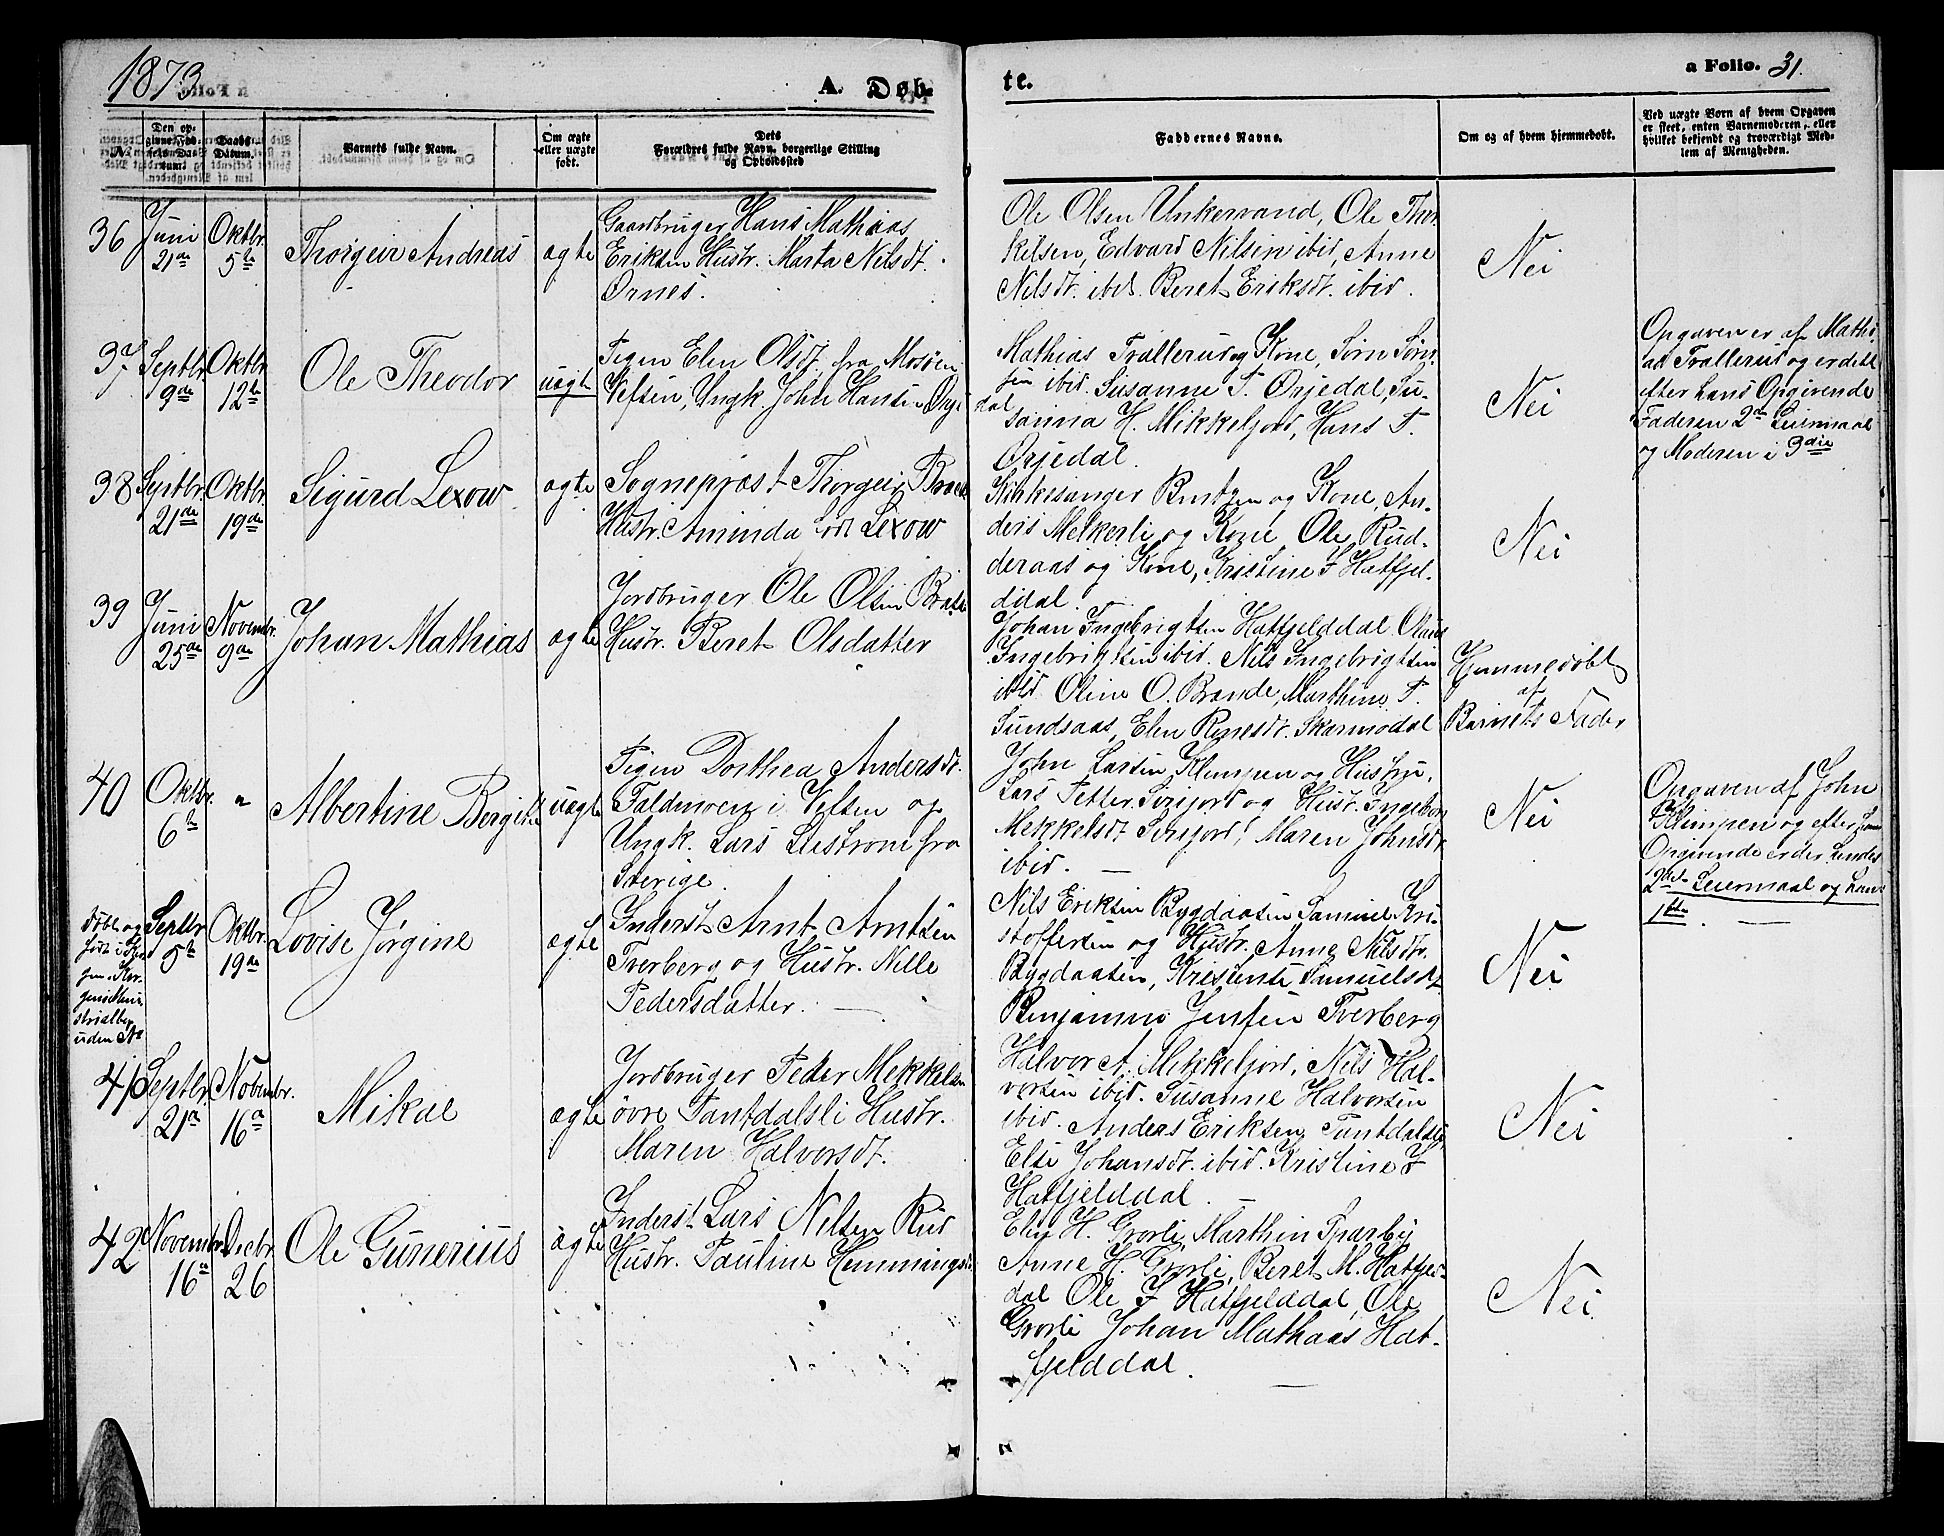 1873
A. Døb-
te.
a Folio. 31.
No.
Den op-
givne Fød-
sels Da-
tum.
Daabs-
Datum.
Barnets fulde Navn.
Om ægte
eller uægte
født.
Dets
Forældres fulde Navn, borgerlige Stilling
og Opholdssted
Faddernes Navne.
Om og af hvem hjemmedøbt.
Ved uægte Børn af hvem Opgaven
er skeet, enten Barnemoderen, eller
hvilket bekjendt og troværdigt Med-
lem af Menigheden.
36
Juni
21de
Oktbr.
5te
Thorgeir Andreas
ægte
Gaardbruger Hans Mathias
Eriksen Hustr. Marta Nilsdt.
Ørnes.
Ole Olsen Unkervand, Ole Thor-
kilsen, Edvard Nilsen ibid, Anne
Nilsdt. ibid. Beret Eriksdt. ibid.
Nei
37
Septbr.
9de
Oktbr.
12te
Ole Theodor
uægt
Pigen Elen Olsdt. fra Mosøen
Vefsen, Ungk. John Hansen Ørje
dal
Mathias Trallerud og Kone, Sørn Sørn-
sen ibid. Susanne T. Ørjedal, Su-
sanna H. Mikkeljord, Hans T.
Ørjedal.
Nei
Opgaven er af Mathi-
as Trallerud og er det
efter hans Opgivende
Faderen 2det Leiermaal
og Moderen i 3die
38
Septbr.
21de
Oktbr.
19de
Sigurd Lexow
ægte
Sogneprest Thorgeir
Hustr. Aminda født Lexow
Kirkesanger Bentzen og Kone, An-
ders Melkerli og Kone Ole Rud-
deraas og Kone, Kristine J Hatfjel-
ddal.
Nei
39
Juni
25de
Novembr.
9de
Johan Mathias
ægte
Jordbruger Ole Olsen
Hustr. Beret Olsdatter
Johan Ingebrigtsen Hatfjelddal Olaus
Ingebrigtsen ibid. Nils Ingebrigtsen
ibid Oline O. Brande, Marthine T.
Sundsaas, Elen Skarmodal
Hjemmedøbt
af
Barnets Fader
40
Oktbr.
6te
"
Albertine Bergitte
uægte
Pigen Dorthea Andersdt.
Faldmoen i Vefsen og
Ungk. Lars fra
Sverige.
John Larsen Klimpen og Hustru,
Lars Petter Sirijord og Hustr. Ingebor
Mekkelsdt Sirijord! Maren Johnsdt
ibid.
Nei
Opgaven af John
Klimpen og efter hans
Opgivende er der hendes
2det Leiermaal og hans
1ste.
døbt og
født i
uden No
Septbr
5te
Oktbr.
19de
Lovise Jørgine
ægte
Inderst Arnt Arntsen
Tverberg og Hustr. Nille
Pedersdatter.
Nils Eriksen Bygdaasen Samuel Kri-
stoffersen og Hustr. Anne Nilsdtr.
Bygdaasen, Kristense Samuelsdt
Benjamine Jensen Tverberg
Nei
41
Septbr.
21de
Novembr.
16de
Mikal
ægte
Jordbruger Peder Mekkelsen
øvre Pantdalsli Hustr.
Maren Halvorsdt.
Halvor A. Mikkeljord, Nils Hal-
vorsen ibid. Susanne Halvorsen
ibid. Anders Eriksen, Pantdalsli
Else Johansdt. ibid. Kristine J
Hatfjelddal.
Nei
42
Novembr.
16de
Decbr.
26
Ole Gunerius
ægte
Inderst Lars Nelsen Rud
Hustr. Pauline Hemmings
H. Grorli, Marthin Sparby
Anne H. Grorli, Beret M. Hatfjel-
dal Ole J Hatfjelddal, Ole
Grorli Johan Mathias Hat-
fjelddal.
Nei